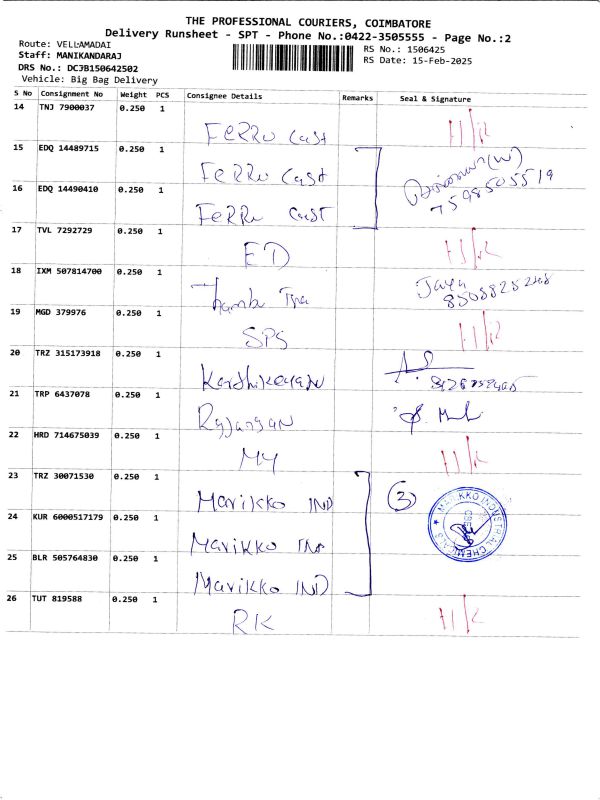 THE PROFESSIONAL COURIERS, COIMBATORE
Delivery Runsheet - SPT - Phone No.:0422-3505555 - Page No.:2
Route: VELLAMADAI
RS No.: 1506425
Staff: MANIKANDARAJ
RS Date: 15-Feb-2025
DRS No.: DCJB150642502
Vehicle: Big Bag Delivery
S No Consignment No Weight PCS Consignee Details Remarks Seal & Signature
14 TNJ 7900037 0.250 1
FeRRu Cast
15 EDQ 14489715 0.250 1
FeRRu Cast
16 EDQ 14490410 0.250 1
7598505519
FeRRu Cast
17 TVL 7292729 0.250 1
ED
18 IXM 507814700 0.250 1
Jaya
19 MGD 379976 0.250 1
SPS
20 TRZ 315173918 0.250 1
Karthikeyan
21 TRP 6437078 0.250 1
22 HRD 714675039 0.250 1
MY
23 TRZ 30071530 0.250 1
Marikko IND
3
MARIKKO INDUSTRIAL CHEMICALS
24 KUR 6000517179 0.250 1
Marikko IND
25 BLR 505764830 0.250 1
Marikko IND
26 TUT 819588 0.250 1
RK